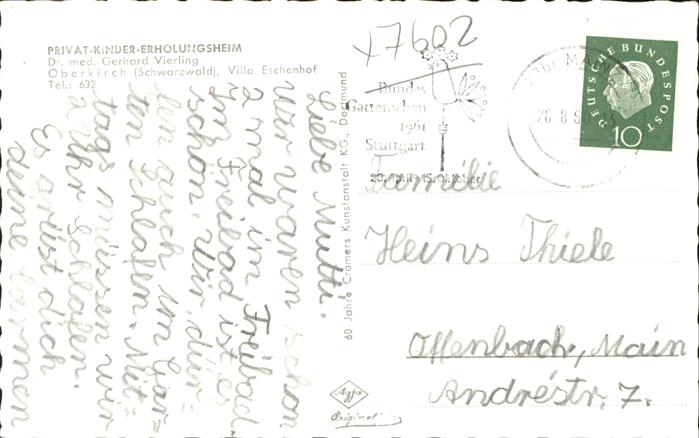 PRIVAT-KINDER-ERHOLUNGSHEIM
Dr. med. Gerhard Vierling
Oberkirch (Schwarzwald), Villa Eschenhof
Tel.: 632
Liebe Mutti.
Wir waren schon
2 mal im Freibad.
Im Freibad ist es
schön. Wir dür=
fen auch im Gar=
ten Schlafen. Mit=
tags müssen wir
2 Uhr Schlafen.
Es grüst dich
deine Carmen
60 Jahre Cramers Kunstanstalt KG., Dortmund
Agfa
Original
x7602
Bundes
Gartenschau
1961
Stuttgart
28. April - 15. Oktober
DEUTSCHE BUNDESPOST
10
Familie
Heins Thiele
Offenbach, Main
Andréstr. 7.